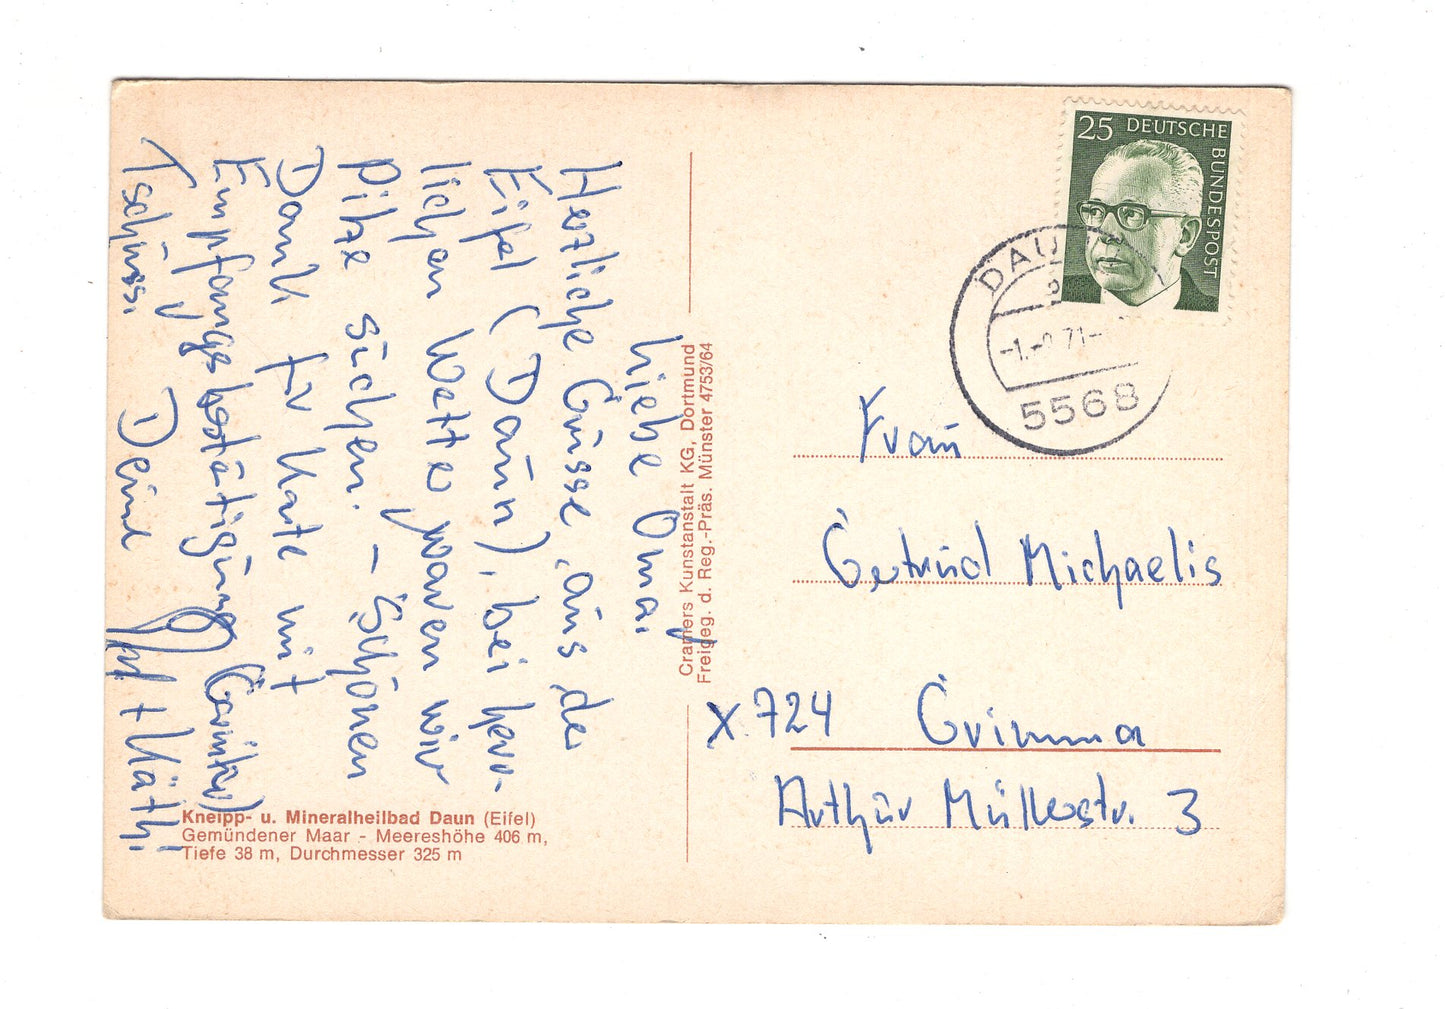 Liebe Oma,
Herzliche Grüsse aus der
Eifel (Daun), bei herr-
lichen Wetter waren wir
Pilze suchen. – Schönen
Dank für Karte mit
Empfangsbestätigung
Tschüss. Deine + Käthi
Kneipp- u. Mineralheilbad Daun (Eifel)
Gemündener Maar - Meereshöhe 406 m,
Tiefe 38 m, Durchmesser 325 m
Cramers Kunstanstalt KG, Dortmund
Freigeg. d. Reg.-Präs. Münster 4753/64
25 DEUTSCHE
BUNDESPOST
DAUN
5568
Frau
Gertrud Michaelis
X 724 Grimma
Arthur Müllerstr. 3